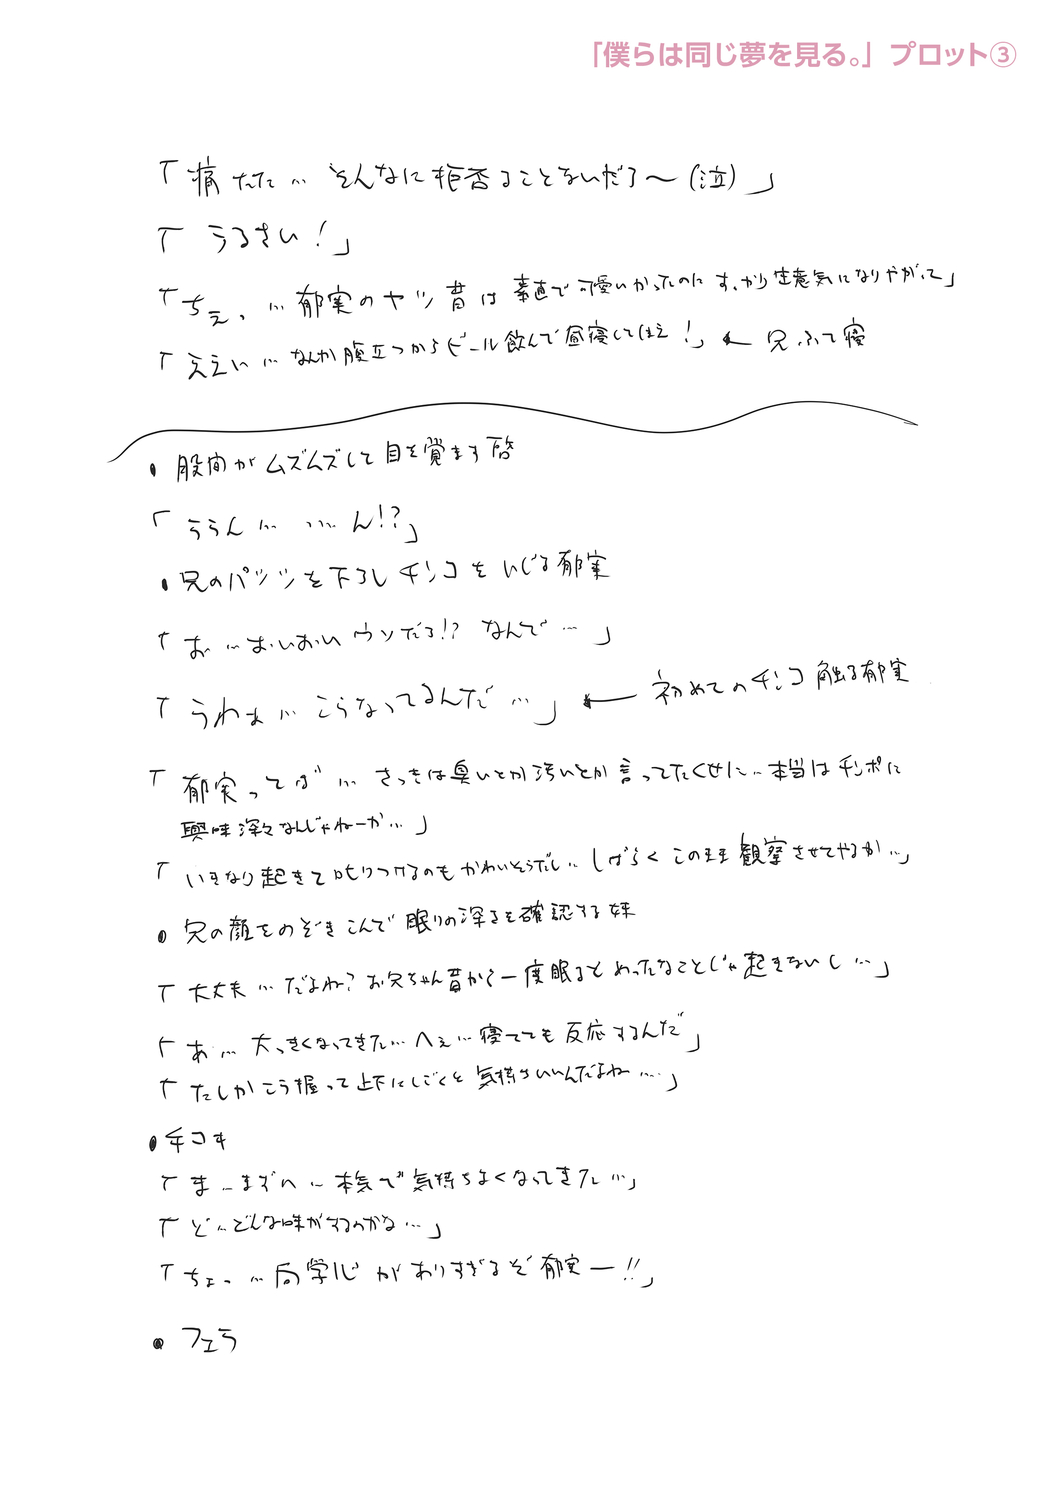 「僕らは同じ夢を見る。」 プロット③
「痛たた… そんなに拒否ることないだろ～(泣)」
「うるさい!」
「ちぇっ…郁実のヤツ昔は素直で可愛いかったのにすっかり生意気になりやがって」
「ええい…なんか腹立つからビール飲んで昼寝してしまえ!」← 兄ふて寝
●股間がムズムズして目を覚ます啓
「ううん… …ん!?」
●兄のパンツを下ろしチンコをいじる郁実
「お…おいおいウソだろ!? なんで…」
「うわぁ…こうなってるんだ…」← 初めてのチンコ触る郁実
「郁実ってば…さっきは臭いとか汚いとか言ってたくせに…本当はチンポに
興味深々なんじゃねーか…」
「いきなり起きて叱りつけるのもかわいそうだし…しばらくこのまま観察させてやるか…」
●兄の顔をのぞきこんで眠りの深さを確認する妹
「大丈夫…だよね? お兄ちゃん昔から一度眠るとめったなことじゃ起きないし…」
「あ…大っきくなってきた…へぇ…寝てても反応するんだ」
「たしかこう握って上下にしごくと気持ちいいんだよね…」
●手コキ
「ま…まずい…本気で気持ちよくなってきた…」
「ど…どんな味がするのかな…」
「ちょっ…向学心がありすぎるぞ郁実ー!!」
●フェラ